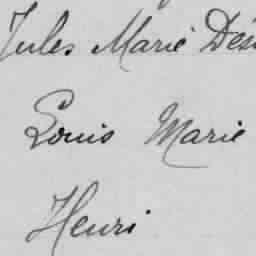 Jules Marie Dés
Louis Marie
Henri